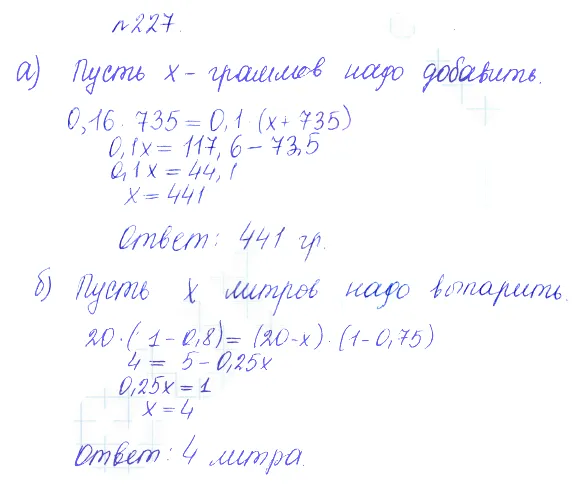 №227.
а) Пусть х - граммов надо добавить.
0,16 · 735 = 0,1 (х + 735)
0,1х = 117,6 - 73,5
0,1х = 44,1
х = 441
Ответ: 441 гр.
б) Пусть х литров надо выпарить.
20 · (1 - 0,8) = (20 - х) · (1 - 0,75)
4 = 5 - 0,25х
0,25х = 1
х = 4
Ответ: 4 литра.